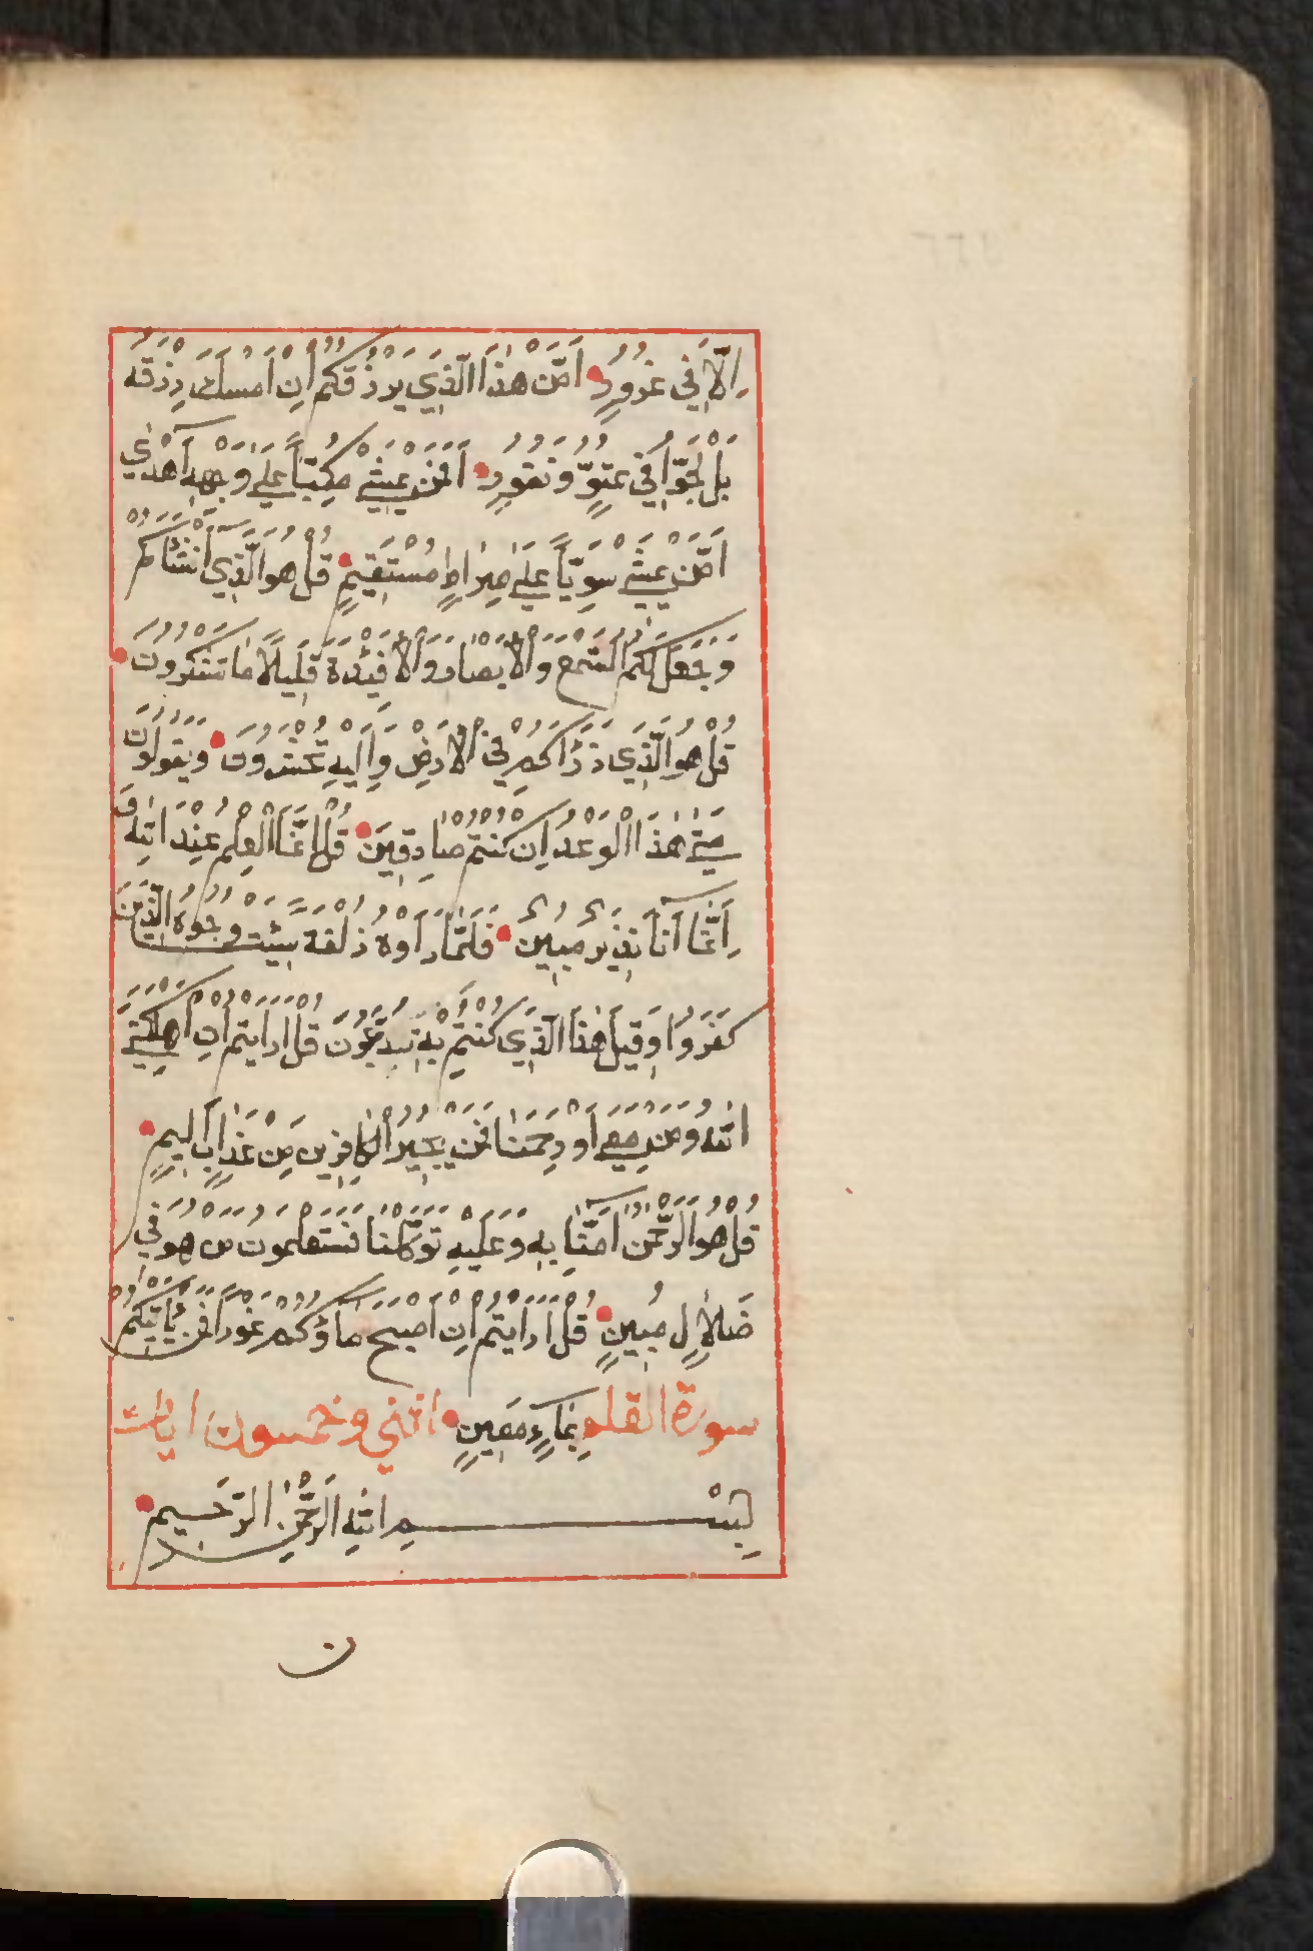 اِلَّا فِي غُرُورٍ اَمَّنْ هٰذَا الَّذِي يَرْزُقُكُمْ اِنْ اَمْسَكَ رِزْقَهُ
بَلْ لَجُّوا فِي عُتُوٍّ وَنُفُورٍ اَفَمَنْ يَمْشِي مُكِبّاً عَلَى وَجْهِهِ اَهْدٰي
اَمَّنْ يَمْشِي سَوِيّاً عَلَى صِرَاطٍ مُسْتَقِيمٍ قُلْ هُوَ الَّذِي اَنْشَاَكُمْ
وَجَعَلَ لَكُمُ السَّمْعَ وَالْاَبْصَارَ وَالْاَفْئِدَةَ قَلِيلًا مَا تَشْكُرُونَ
قُلْ هُوَ الَّذِي ذَرَاَكُمْ فِي الْاَرْضِ وَاِلَيْهِ تُحْشَرُونَ وَيَقُولُونَ
مَتٰى هٰذَا الْوَعْدُ اِنْ كُنْتُمْ صَادِقِينَ قُلْ اِنَّمَا الْعِلْمُ عِنْدَ اللّٰهِ وَ
اِنَّمَا اَنَا نَذِيرٌ مُبِينٌ فَلَمَّا رَاَوْهُ زُلْفَةً سِيئَتْ وُجُوهُ الَّذِينَ
كَفَرُوا وَقِيلَ هٰذَا الَّذِي كُنْتُمْ بِهِ تَدَّعُونَ قُلْ اَرَاَيْتُمْ اِنْ اَهْلَكَنِيَ
اللّٰهُ وَمَنْ مَعِيَ اَوْ رَحِمَنَا فَمَنْ يُجِيرُ الْكَافِرِينَ مِنْ عَذَابٍ اَلِيمٍ
قُلْ هُوَ الرَّحْمٰنُ اٰمَنَّا بِهِ وَعَلَيْهِ تَوَكَّلْنَا فَسَتَعْلَمُونَ مَنْ هُوَ فِي
ضَلَالٍ مُبِينٍ قُلْ اَرَاَيْتُمْ اِنْ اَصْبَحَ مَاؤُكُمْ غَوْراً فَمَنْ يَأْتِيكُمْ
سورة القلم بِمَاءٍ مَعِينٍ اثنی وخمسون ايات
بِسْمِ اللّٰهِ الرَّحْمٰنِ الرَّحِيمِ
ن